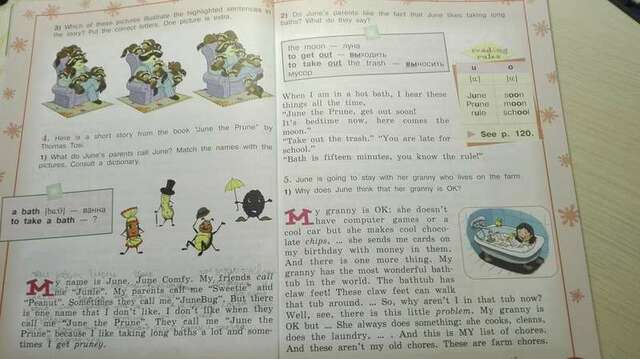 3) Which of these pictures illustrate the highlighted sentences in
the story? Put the correct letters. One picture is extra.
4. Here is a short story from the book "June the Prune" by
Thomas Tosi.
1) What do June's parents call June? Match the names with the
pictures. Consult a dictionary.
a bath [bɑ:θ] — ванна
to take a bath — ?
My name is June, June Comfy. My friends call
me "Junie". My parents call me "Sweetie" and
"Peanut". Sometimes they call me "JuneBug". But there
is one name that I don't like. I don't like when they
call me "June the Prune". They call me "June the
Prune" because I like taking long baths a lot and some-
times I get pruney.
2) Do June's parents like the fact that June likes taking long
baths? What do they say?
the moon — луна
to get out — выходить
to take out the trash — выносить
мусор
When I am in a hot bath, I hear these
things all the time.
"June the Prune, get out soon!
It's bedtime now, here comes the
moon."
"Take out the trash." "You are late for
school."
"Bath is fifteen minutes, you know the rule!"
reading
rules
u o
June soon
Prune moon
rule school
See p. 120.
5. June is going to stay with her granny who lives on the farm.
1) Why does June think that her granny is OK?
My granny is OK: she doesn't
have computer games or a
cool car but she makes cool choco-
late chips, ... she sends me cards on
my birthday with money in them.
And there is one more thing. My
granny has the most wonderful bath-
tub in the world. The bathtub has
claw feet! These claw feet can walk
that tub around. ... So, why aren't I in that tub now?
Well, see, there is this little problem. My granny is
OK but ... She always does something: she cooks, cleans,
does the laundry, ... . And this is MY list of chores.
And these aren't my old chores. These are farm chores.